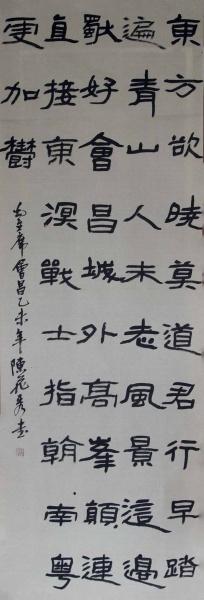 東方欲曉莫道君行早踏
遍青山人未老風景這邊
獨好會昌城外高峯顛連
直接東溟戰士指看南粤
更加鬱
毛主席會昌乙未年陳花秀書